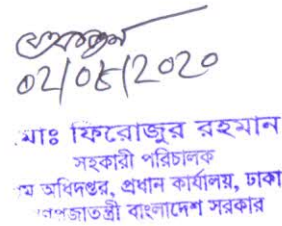 02/06/2020
মোঃ ফিরোজুর রহমান
সহকারী পরিচালক
অধিদপ্তর, প্রধান কার্যালয়, ঢাকা
গণপ্রজাতন্ত্রী বাংলাদেশ সরকার